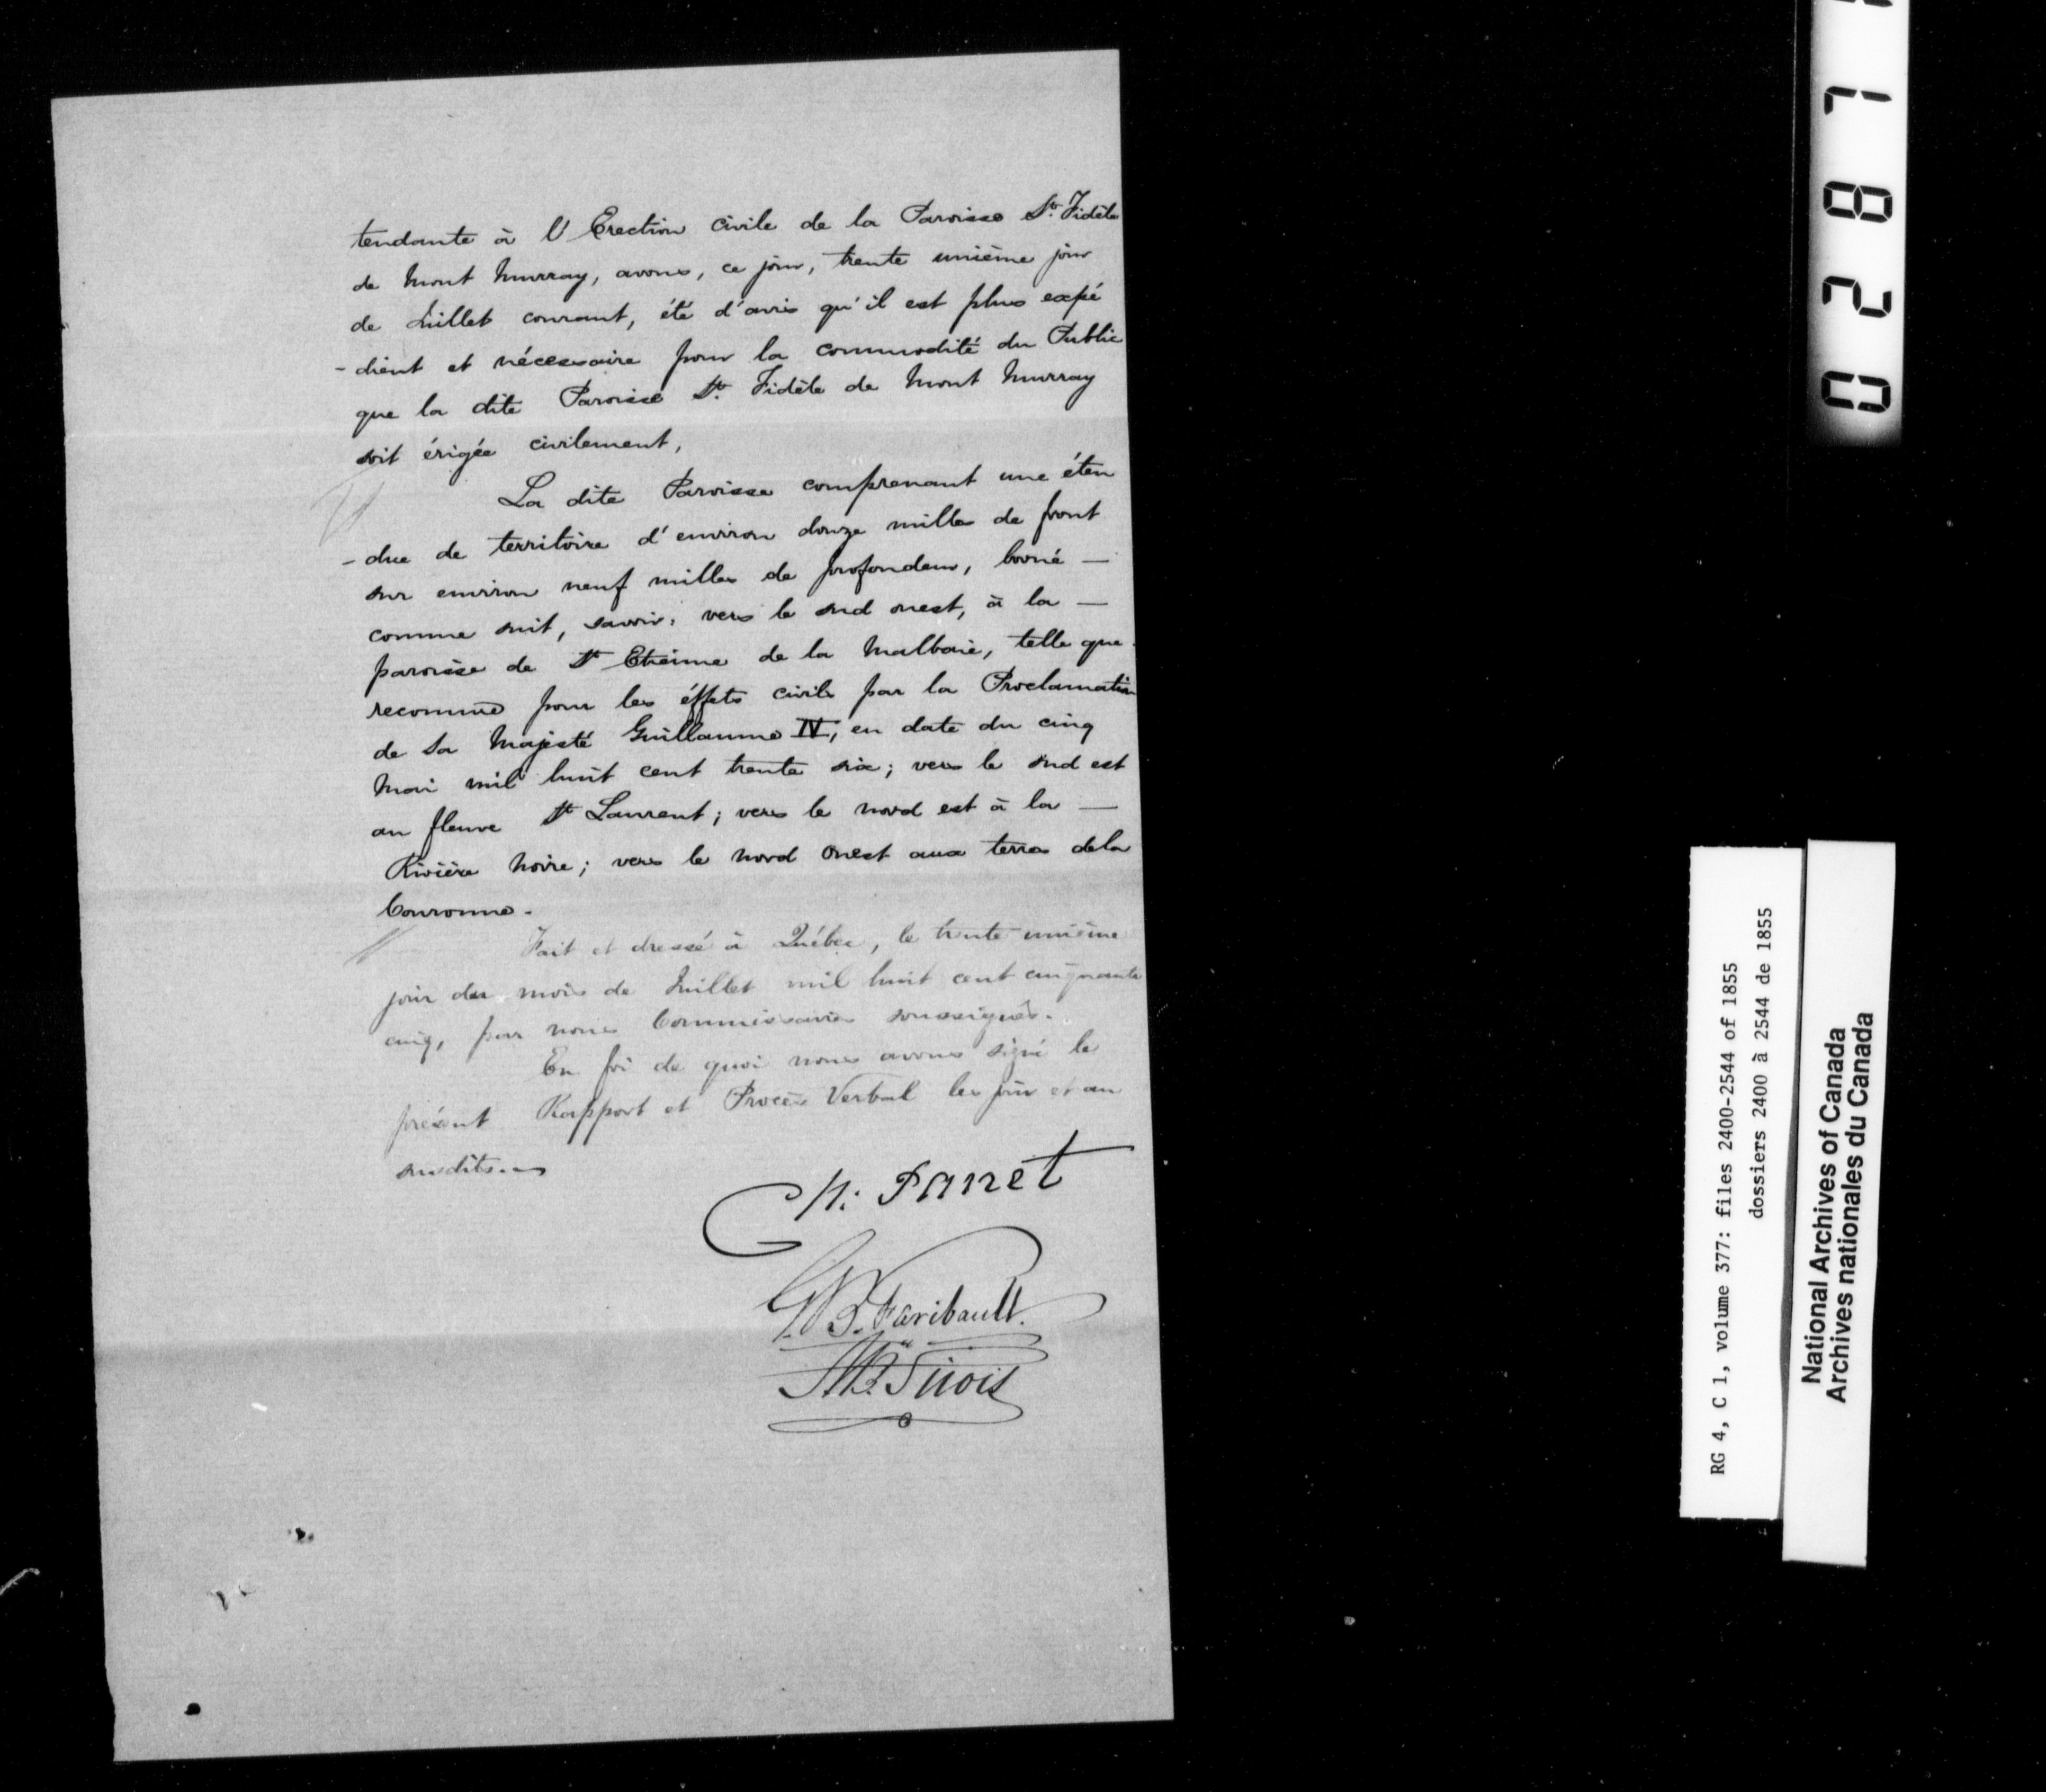 tendante à l'Erection civile de la Paroisse St. Fidèle
de Mont Murray, avons, ce jour, trente unième jour
de Juillet courant, été d'avis qu'il est plus expé
- dient et nécessaire pour la commodité du Public
que la dite Paroisse St. Fidèle de Mont Murray
soit érigée civilement,
La dite Paroisse comprenant une éten
- due de territoire d'environ douze milles de front
sur environ neuf milles de profondeur, borné —
comme suit, savoir: vers le sud ouest, à la —
paroisse de St Etienne de la Malbaie, telle que
reconnue pour les éffets civils par la Proclamation
de Sa Majesté Guillaume IV, en date du cinq
Mai mil huit cent trente six; vers le sud est
au fleuve St Laurent; vers le nord est à la —
Rivière Noire; vers le nord Ouest aux terres dela
Couronne.
Fait et dressé à Québec, le trente unième
jour du mois de Juillet mil huit cent cinquante
cinq, par nous Commissaires soussignés.
En foi de quoi nous avons signé le
présent Rapport et Procès Verbal les jour et an
susdits.
Ch: Panet
G. B. Faribault.
RG 4, C 1, volume 377: files 2400-2544 of 1855
dossiers 2400 à 2544 de 1855
National Archives of Canada
Archives nationales du Canada
0287